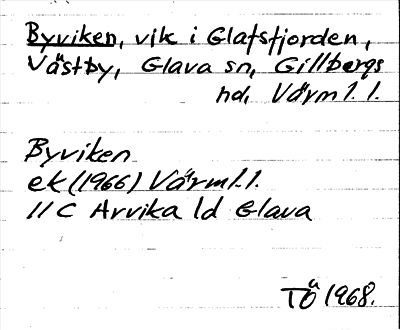 Byviken, vik i Glafsfjorden,
Västby, Glava sn, Gillbergs
hd, Värml. l.
Byviken
ek (1966) Värml. l.
11 C Arvika 1d Glava
TÖ 1968.